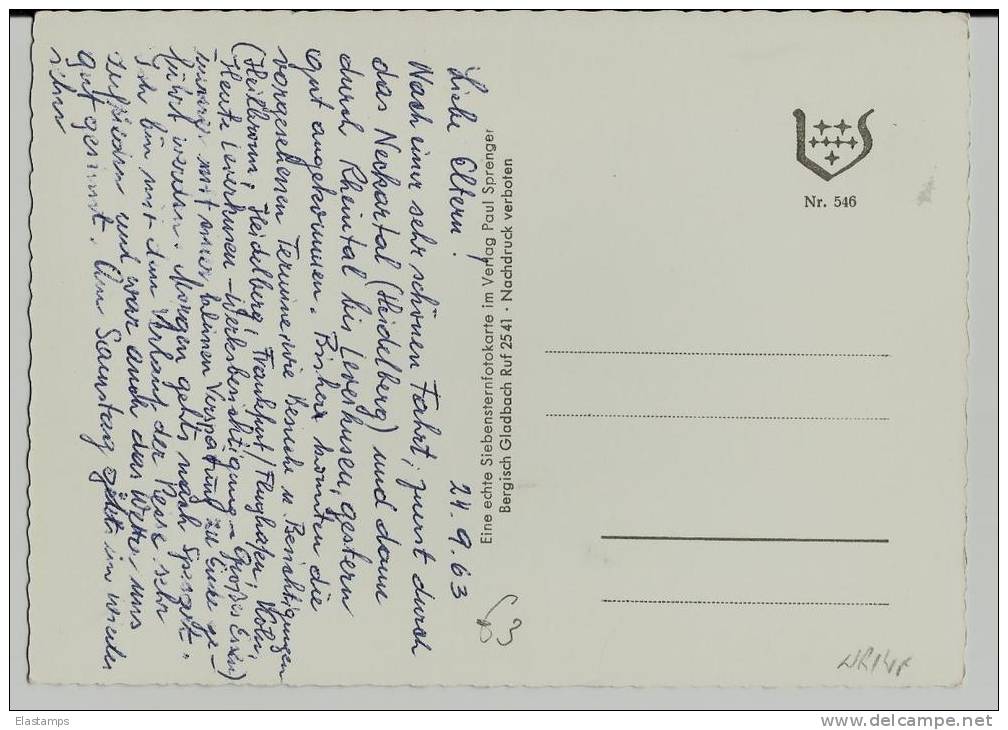 Liebe Eltern! 24.9.63
Nach einer sehr schönen Fahrt, zuerst durch
das Neckartal (Heidelberg) und dann
durch Rheintal bis Leverkusen, gestern
gut angekommen. Bisher konnten die
vorgesehenen Termine, wie Besuche u. Besichtigungen
(Heilbronn, Heidelberg, Frankfurt/Flughafen, Köln,
Heute Leverkusen – Werksbesichtigung – Großes Essen)
immer mit einer kleinen Verspätung zu Ende ge-
führt werden. Morgen gehts nach
Ich bin mit dem Verlauf der Reise sehr
zufrieden und war auch das Wetter uns
gut gesinnt. Am Samstag gehts im
Eine echte Siebensternfotokarte im Verlag Paul Sprenger
Bergisch Gladbach Ruf 2541 · Nachdruck verboten
Nr. 546
63
Elastamps
www.delcampe.net